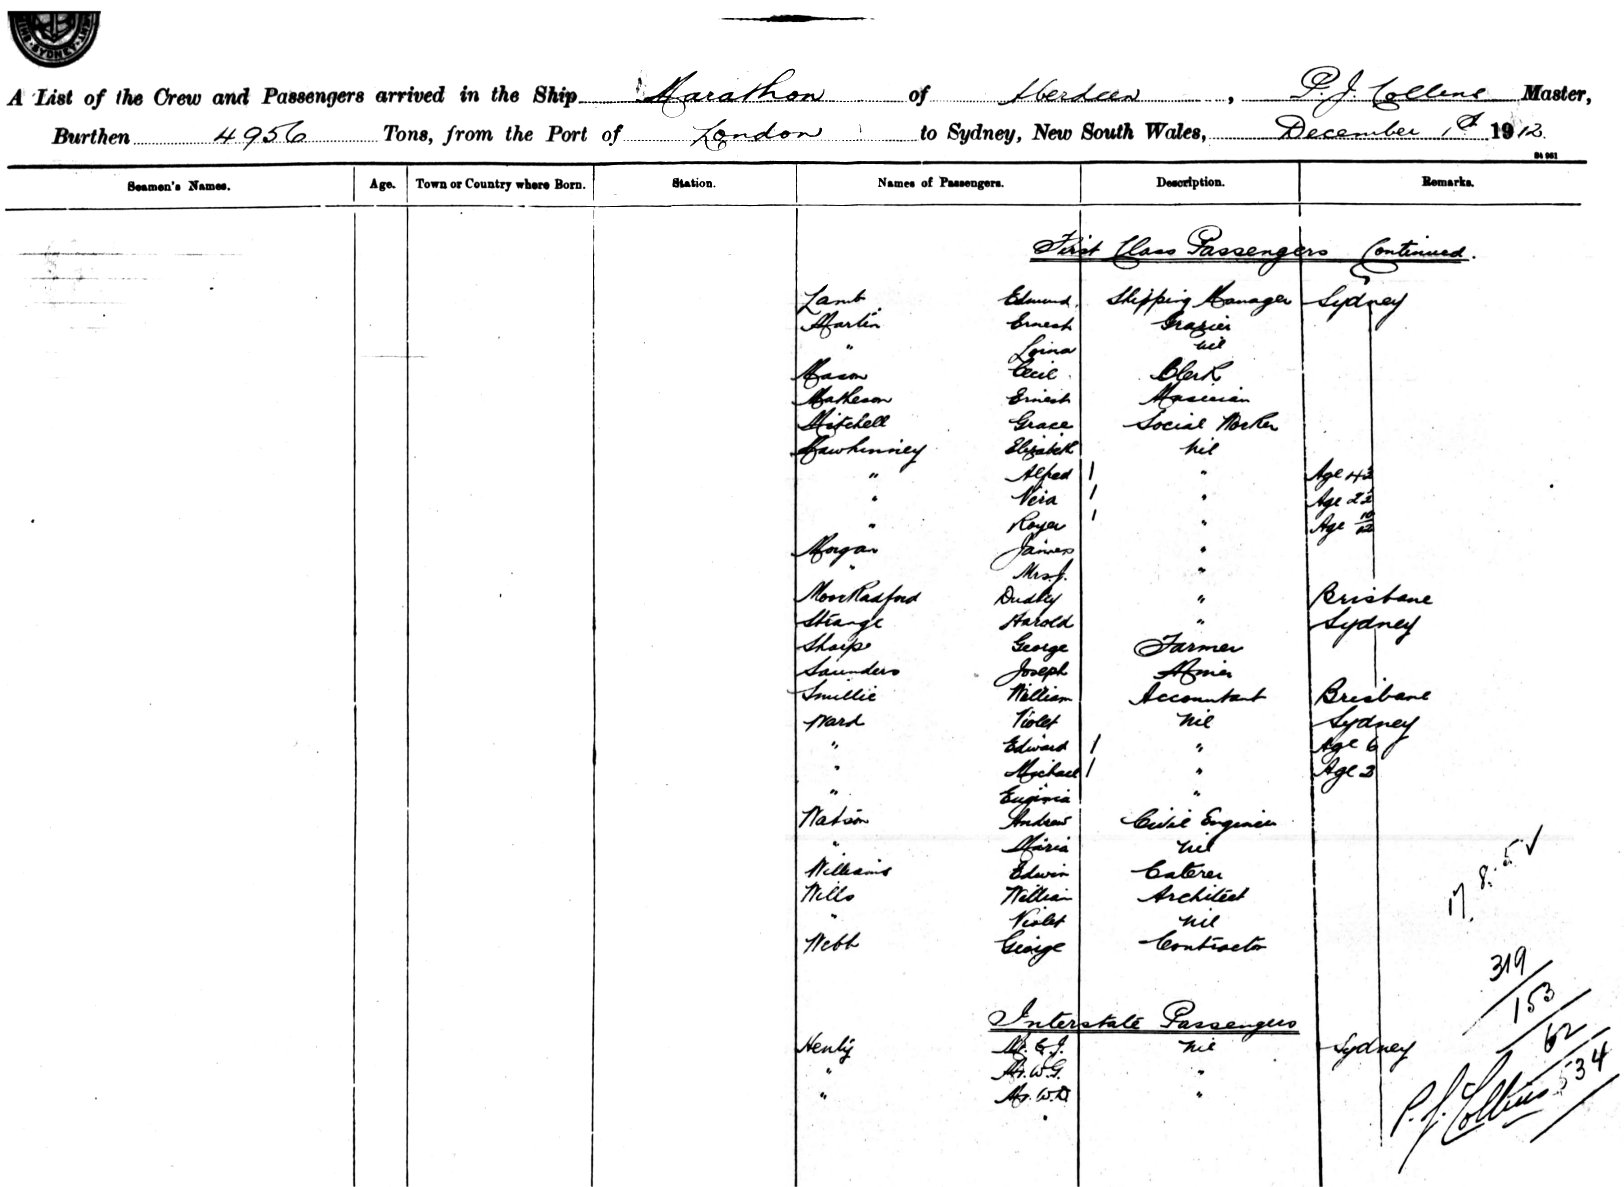 SYDNEY
A List of the Crew and Passengers arrived in the Ship Marathon of Aberdeen, P. J. Collins Master,
Burthen 4956 Tons, from the Port of London to Sydney, New South Wales, December 1st 1912.
Seamen's Names. Age. Town or Country where Born. Station. Names of Passengers. Description. Remarks.
First Class Passengers Continued.
Lamb Edmund. Shipping Manager Sydney
Martin Ernest Grazier
" Lorna Nil
Mason Cecil Clerk
Matheson Ernest Musician
Mitchell Grace Social Worker
Mawhinney Elizabeth Nil
" Alfred 1 " Age
" Vera 1 " Age
" Roger 1 " Age 10/12
Morgan James "
" Mrs J. "
Moor Radford Dudley " Brisbane
Strange Harold " Sydney
Sharpe George Farmer
Saunders Joseph
Smillie William Accountant Brisbane
Ward Violet Nil Sydney
" Edward 1 " Age 6
" Michael 1 " Age 3
" Euginia "
Watson Andrew Civil Engineer
" Maria Nil
Williams Edwin Caterer
Wills William Architect
" Violet Nil
Webb George Contractor
17. 8. 5
319
153
62
534
Interstate Passengers
Henty Mr. C. J. Nil Sydney
" Mr. W. G. "
" Mr. W. D. "
P. J. Collins